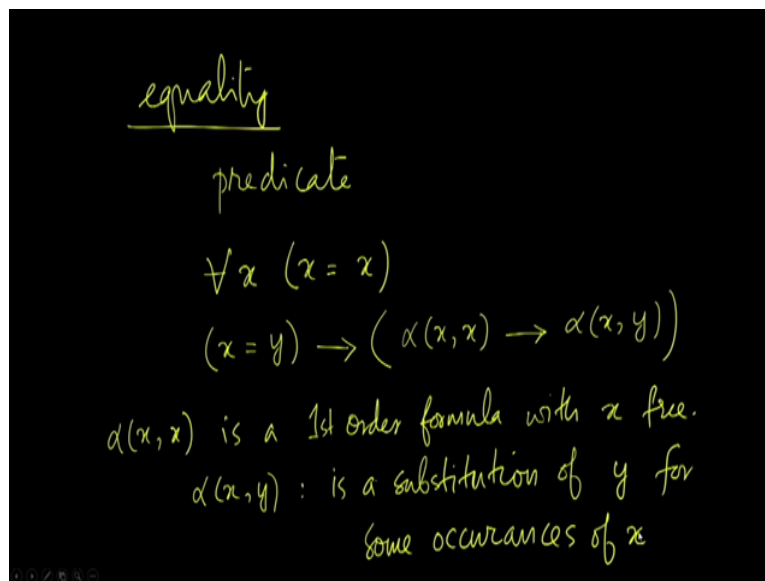 equality
predicate
∀x (x = x)
(x = y) → (α(x, x) → α(x, y))
α(x, x) is a 1st order formula with x free.
α(x, y) : is a substitution of y for
some occurances of x